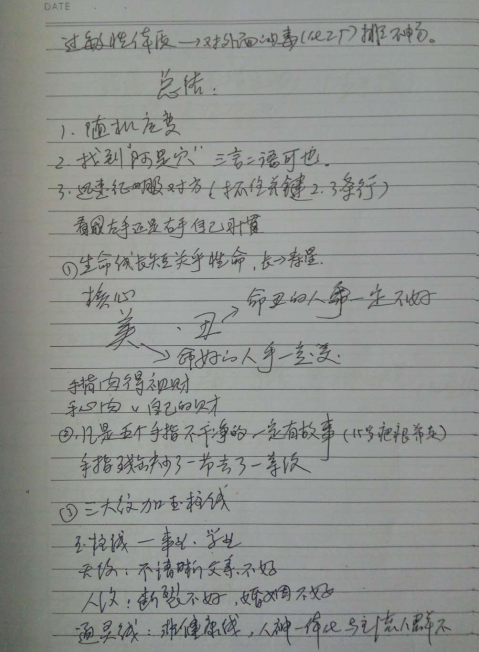 DATE
过敏性体质→对外面的毒(化工厂)排毒不畅。
总结:
1. 随机应变
2. 找到"阿是穴" 三言二语可也。
3. 迅速征服对方(抓住关键2.3条行)
看取左手还是右手自己计算
①生命线长短关乎性命,长→寿星.
核心
美 · 丑 → 命丑的人手一定不好
→ 命好的人手一定美.
手指肉得祖财
手心肉 〃 自己的财
②凡是五个手指不干净的,一定有故事(
手指残缺少了一节去了一等
③三大纹加玉柱线
玉柱线一事业.学业
天纹:不清晰父亲不好
人纹:断裂不好,婚姻不好
通灵线:非健康线,人神一体